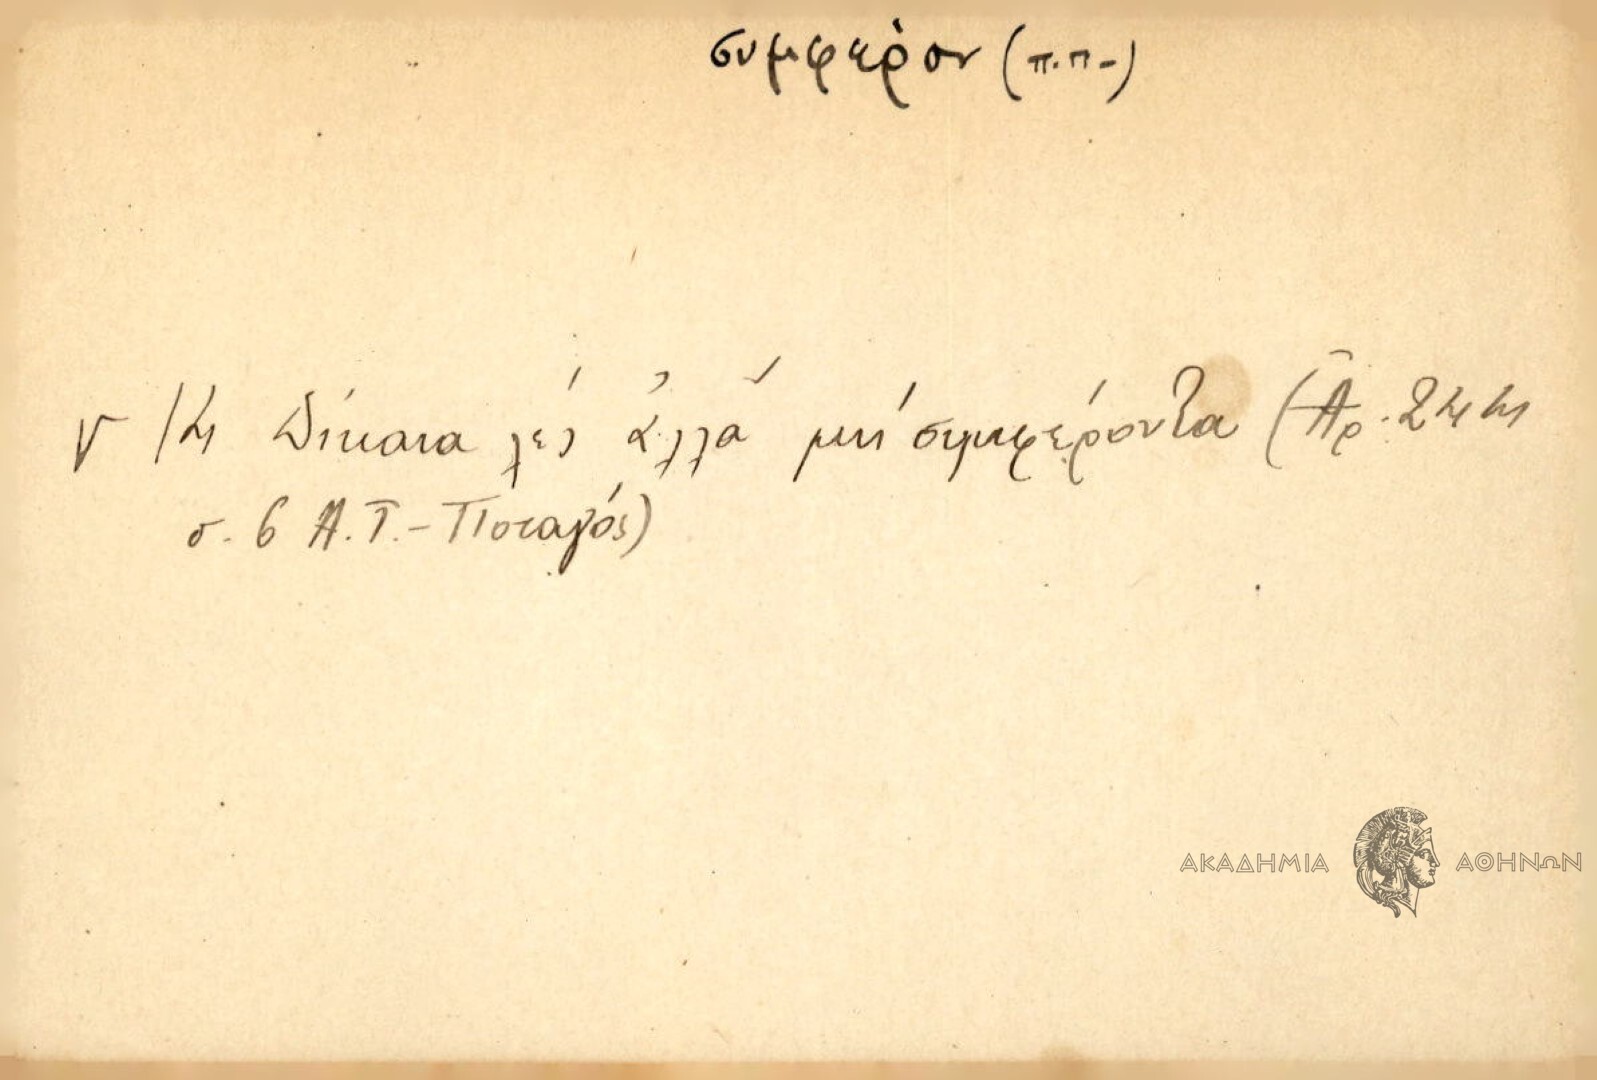 συμφέρον (π.π-)
Δίκαια λές ἀλλὰ μή συμφέροντα (Ἀρ. 244
σ. 6 Α.Τ. - Ποταμός)
ΑΚΑΔΗΜΙΑ ΑΘΗΝΩΝ